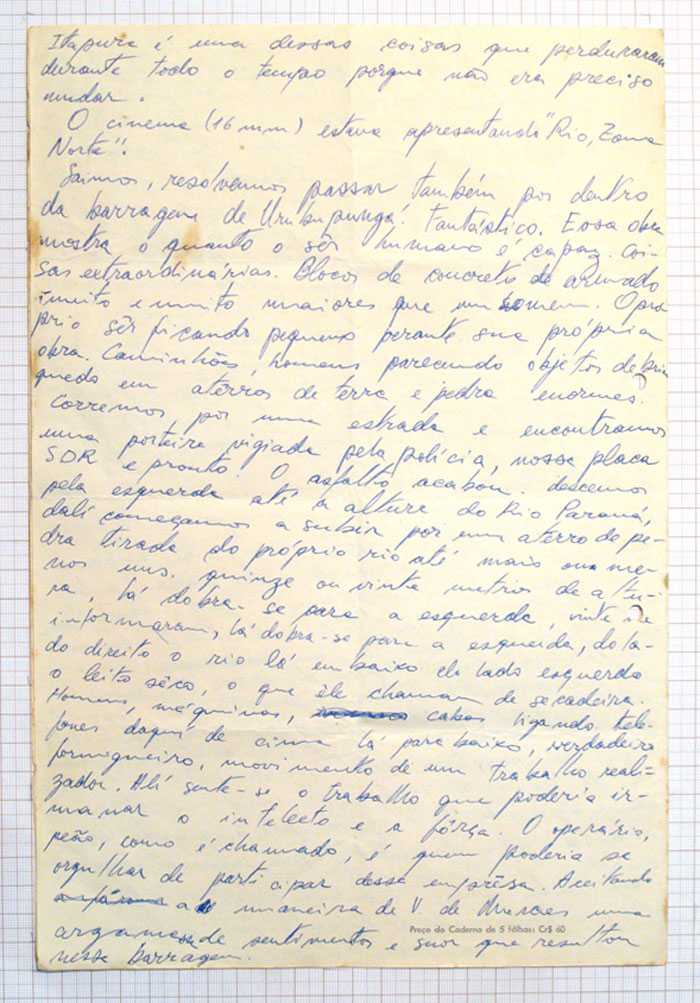 Itapura é uma dessas coisas que perduraram
durante todo o tempo porque não era preciso
mudar.
O cinema (16 mm) estava apresentando "Rio, Zona
Norte".
Saimos, resolvemos passar também por dentro
da barragem de Urubupungá. Fantástico. Essa obra
mostra o quanto o sêr humano é capaz. Coi-
sas extraordinárias. Blocos de concreto armado
muito e muito maiores que um homem. O pro
prio sêr ficando pequeno perante sua própria
obra. Caminhões, homens parecendo objetos de brin
quedo em atêrros de terra e pedra enormes.
Corremos por uma estrada e encontramos
uma porteira vigiada pela polícia, nossa placa
SDR e pronto. O asfalto acabou. descemos
pela esquerda até a altura do Rio Paraná,
dalí começamos a subir por um aterro de pe-
dra tirada do próprio rio até mais ou me-
nos uns. quinze ou vinte metros de altu-
ra, lá dobra-se para a esquerda,
informaram, lá dobra-se para a esquerda, do la-
do direito o rio lá embaixo do lado esquerdo
o leito sêco, o que êle chamam de secadeira.
Homens, máquinas, cabos ligando tele-
fones daquí de cima lá para baixo, verdadeiro
formigueiro, movimento de um trabalho reali-
zador. Alí sente-se o trabalho que poderia ir-
manar o intelecto e a fôrça. O operário,
peão, como é chamado, é quem poderia se
orgulhar de participar dessa emprêsa. Aceitando
a maneira de V. de Moraes uma
argamassa de sentimentos e suor que resultou
nessa barragem.
Preço do Caderno de 5 fôlhas: Cr$ 60